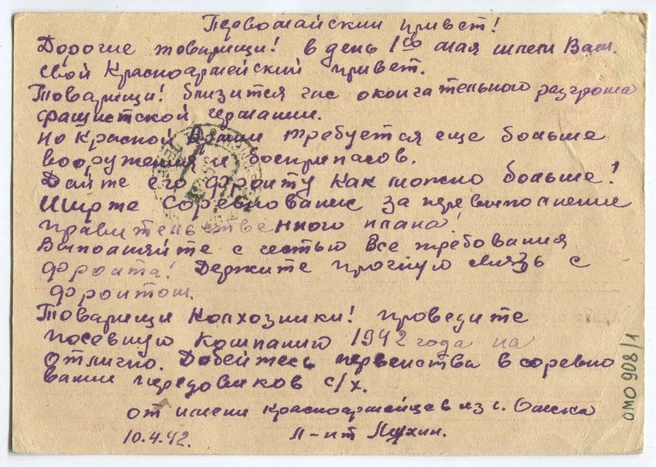 Первомайский привет!
Дорогие товарищи! в день 1го мая шлем Вам
свой Красноармейский привет.
Товарищи! близится час окончательного разгрома
фашистской германии.
Но Красной Армии требуется еще больше
вооружения и боеприпасов.
Дайте его фронту как можно больше!
Шире соревнование за перевыполнение
правительственного плана!
Выполняйте с честью все требования
фронта! Держите прочную связь с
фронтом.
Товарищи Колхозники! проведите
посевную Компанию 1942 года на
отлично. Добейтесь первенства в соревно
вании передовиков с/х.
от имени Красноармейцев из г. Омска
10.4.42. Л-нт
ОМО 908/1